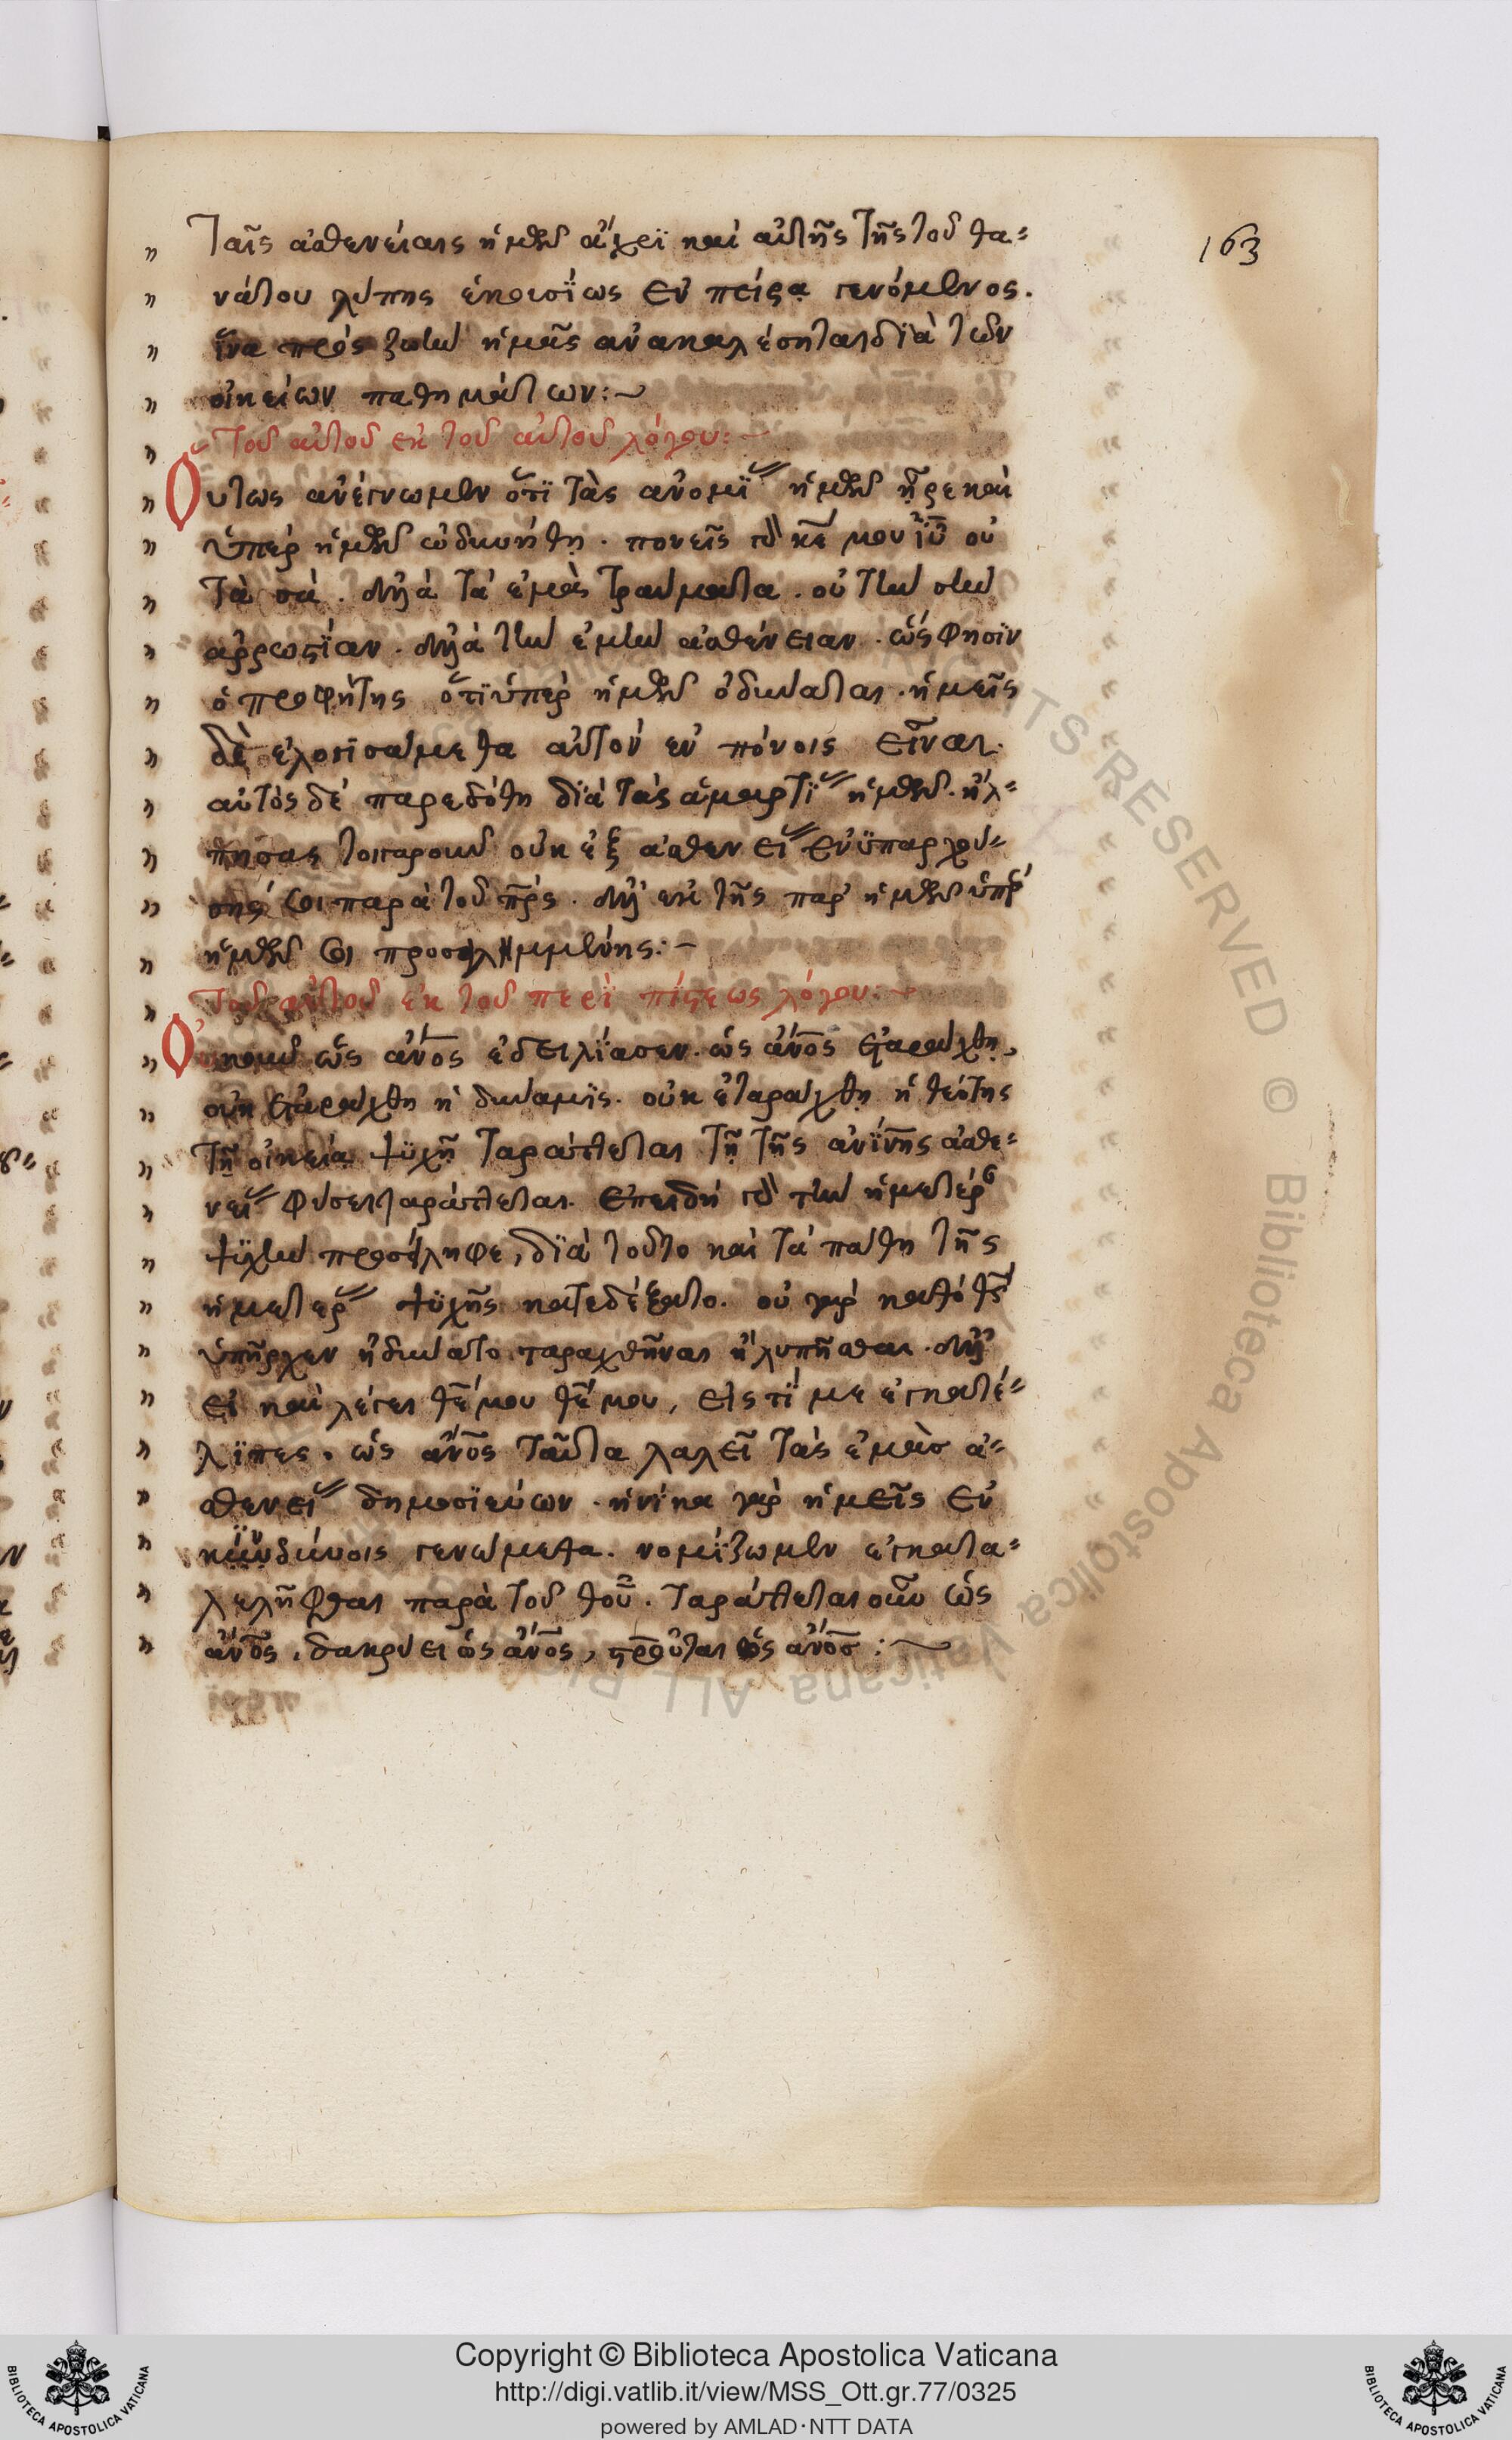 ταῖς ἀσθενείαις ἡμῶν ἄχρϊ καὶ αὐτῆς τῆς τοῦ θα-
νάτου λύπης ἑκουσΐως ἐν πείρᾳ γενόμενος.
ἵνα πρὸς ζωὴν ἡμᾶς ἀνακαλέσηται διὰ τῶν
οἰκείων παθημάτων:~
Τοῦ αὐτοῦ ἐκ τοῦ αὐτοῦ λόγου:~
Οὕτως ἀνέγνωμεν ὅτϊ τὰς ἀνομΐ ἡμῶν ᾖρε καὶ
ὑπὲρ ἡμῶν ὠδυνήθη. πονεῖς κε μου ιυ οὐ
τὰ σὰ. ἀλλὰ τὰ ἐμὰ τραύματα. οὐ τὴν σὴν
ἀρρωστΐαν. ἀλλὰ τὴν ἐμὴν ἀσθένειαν. ὥς φησϊν
ὁ προφήτης ὅτϊ ὑπὲρ ἡμῶν ὀδυνᾶται. ἡμεῖς
δὲ ἐλογϊσάμεθα αὐτὸν ἐν πόνοις εἶναι.
αὐτὸς δὲ παρεδόθη δϊὰ τὰς ἁμαρτΐ ἡμῶν. ἤλ-
γησας τοιγαροῦν οὐκ ἐξ ἀσθενεί ἐνϋπαρχού-
σης σοι παρὰ τοῦ πρς. ἀλλ' ἐκ τῆς παρ' ἡμῶν ὑπὲρ
ἡμῶν σοι προσειλημμένης:~
Τοῦ αὐτοῦ ἐκ τοῦ περὶ πίστεως λόγου:~
Οὐκοῦν ὡς ἀνος ἐδειλΐασεν. ὡς ἀνος ἐταράχθη,
οὐκ ἐταράχθη ἡ δύναμϊς. οὐκ ἐταράχθη ἡ θεότης
τῇ οἰκείᾳ ψϋχῇ ταράττεται τῇ τῆς ἀνΐνης ἀσθε-
νεί φύσει ταράττεται. ἐπειδὴ τὴν ἡμετέρ
ψϋχὴν προσείληφε, δϊὰ τοῦτο καὶ τὰ πάθη τῆς
ἡμετέρ ψϋχῆς κατεδέξατο. οὐ γὰρ καθὸ θς
ὑπῆρχεν ἠδύνατο ταραχθῆναι ἢ λυπῆσθαι. ἀλλ'
εἰ καὶ λέγει θέ μου θέ μου, εἰς τΐ με ἐγκατέ-
λϊπες. ὡς ἀνος ταῦτα λαλεῖ τὰς ἐμὰσ ἀ-
σθενεί δημοσϊεύων. ἡνίκα γὰρ ἡμεῖς ἐν
κινδύνοις γενώμεθα. νομΐζωμεν ἐγκατα-
λελῆφθαι παρὰ τοῦ θοῦ. ταράττεται οὖν ὡς
ἀνος, δακρύει ὡς ἀνος, στροῦται ὡς ἀνοσ:~
163
Copyright © Biblioteca Apostolica Vaticana
http://digi.vatlib.it/view/MSS_Ott.gr.77/0325
powered by AMLAD·NTT DATA
BIBLIOTECA APOSTOLICA VATICANA
BIBLIOTECA APOSTOLICA VATICANA